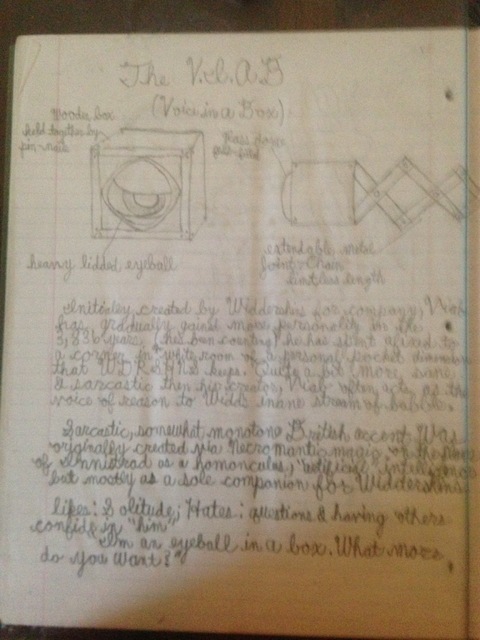 The V.I.A.B
(Voice in a Box)
Wooden box
held together by
pin-nails
heavy lidded eyeball
extendable metal
Joint-Chain
limitless length
created by Widdershins for company, Viab
has gradually gained more personality in the
3,836 years, (he's been counting) he has spent affixed to
a corner in "white room of a personal pocket dimension
that keeps. Quite a bit more sane,
& sarcastic then his creator, Viab often acts as the
voice of reason to Widd's inane stream of babble.
Sarcastic, somewhat monotone British accent. Was
originally created via Necromantic magic on the
of Innistrad as a homonculus, "artificial" intelligence
but mostly as a sole companion for Widdershins
Likes: Solitude; Hates: questions & having others
confide in "him"
"I'm an eyeball in a box. What more
do you want?"